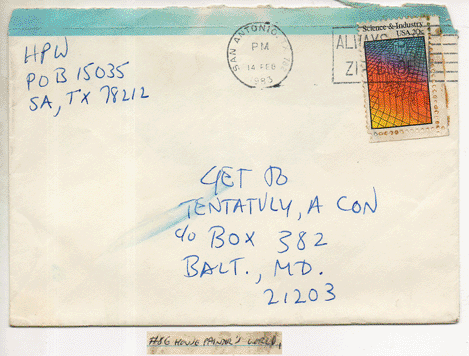 HPW
POB 15035
SA, TX 78212
SAN ANTONIO, TX
PM
14 FEB
1983
ALWAYS
ZI
Science & Industry
USA 20c
GET TO
TENTATVLY, A CON
c/o BOX 382
BALT., MD.
21203
#86 HOUSE PAINTER'S WORLD